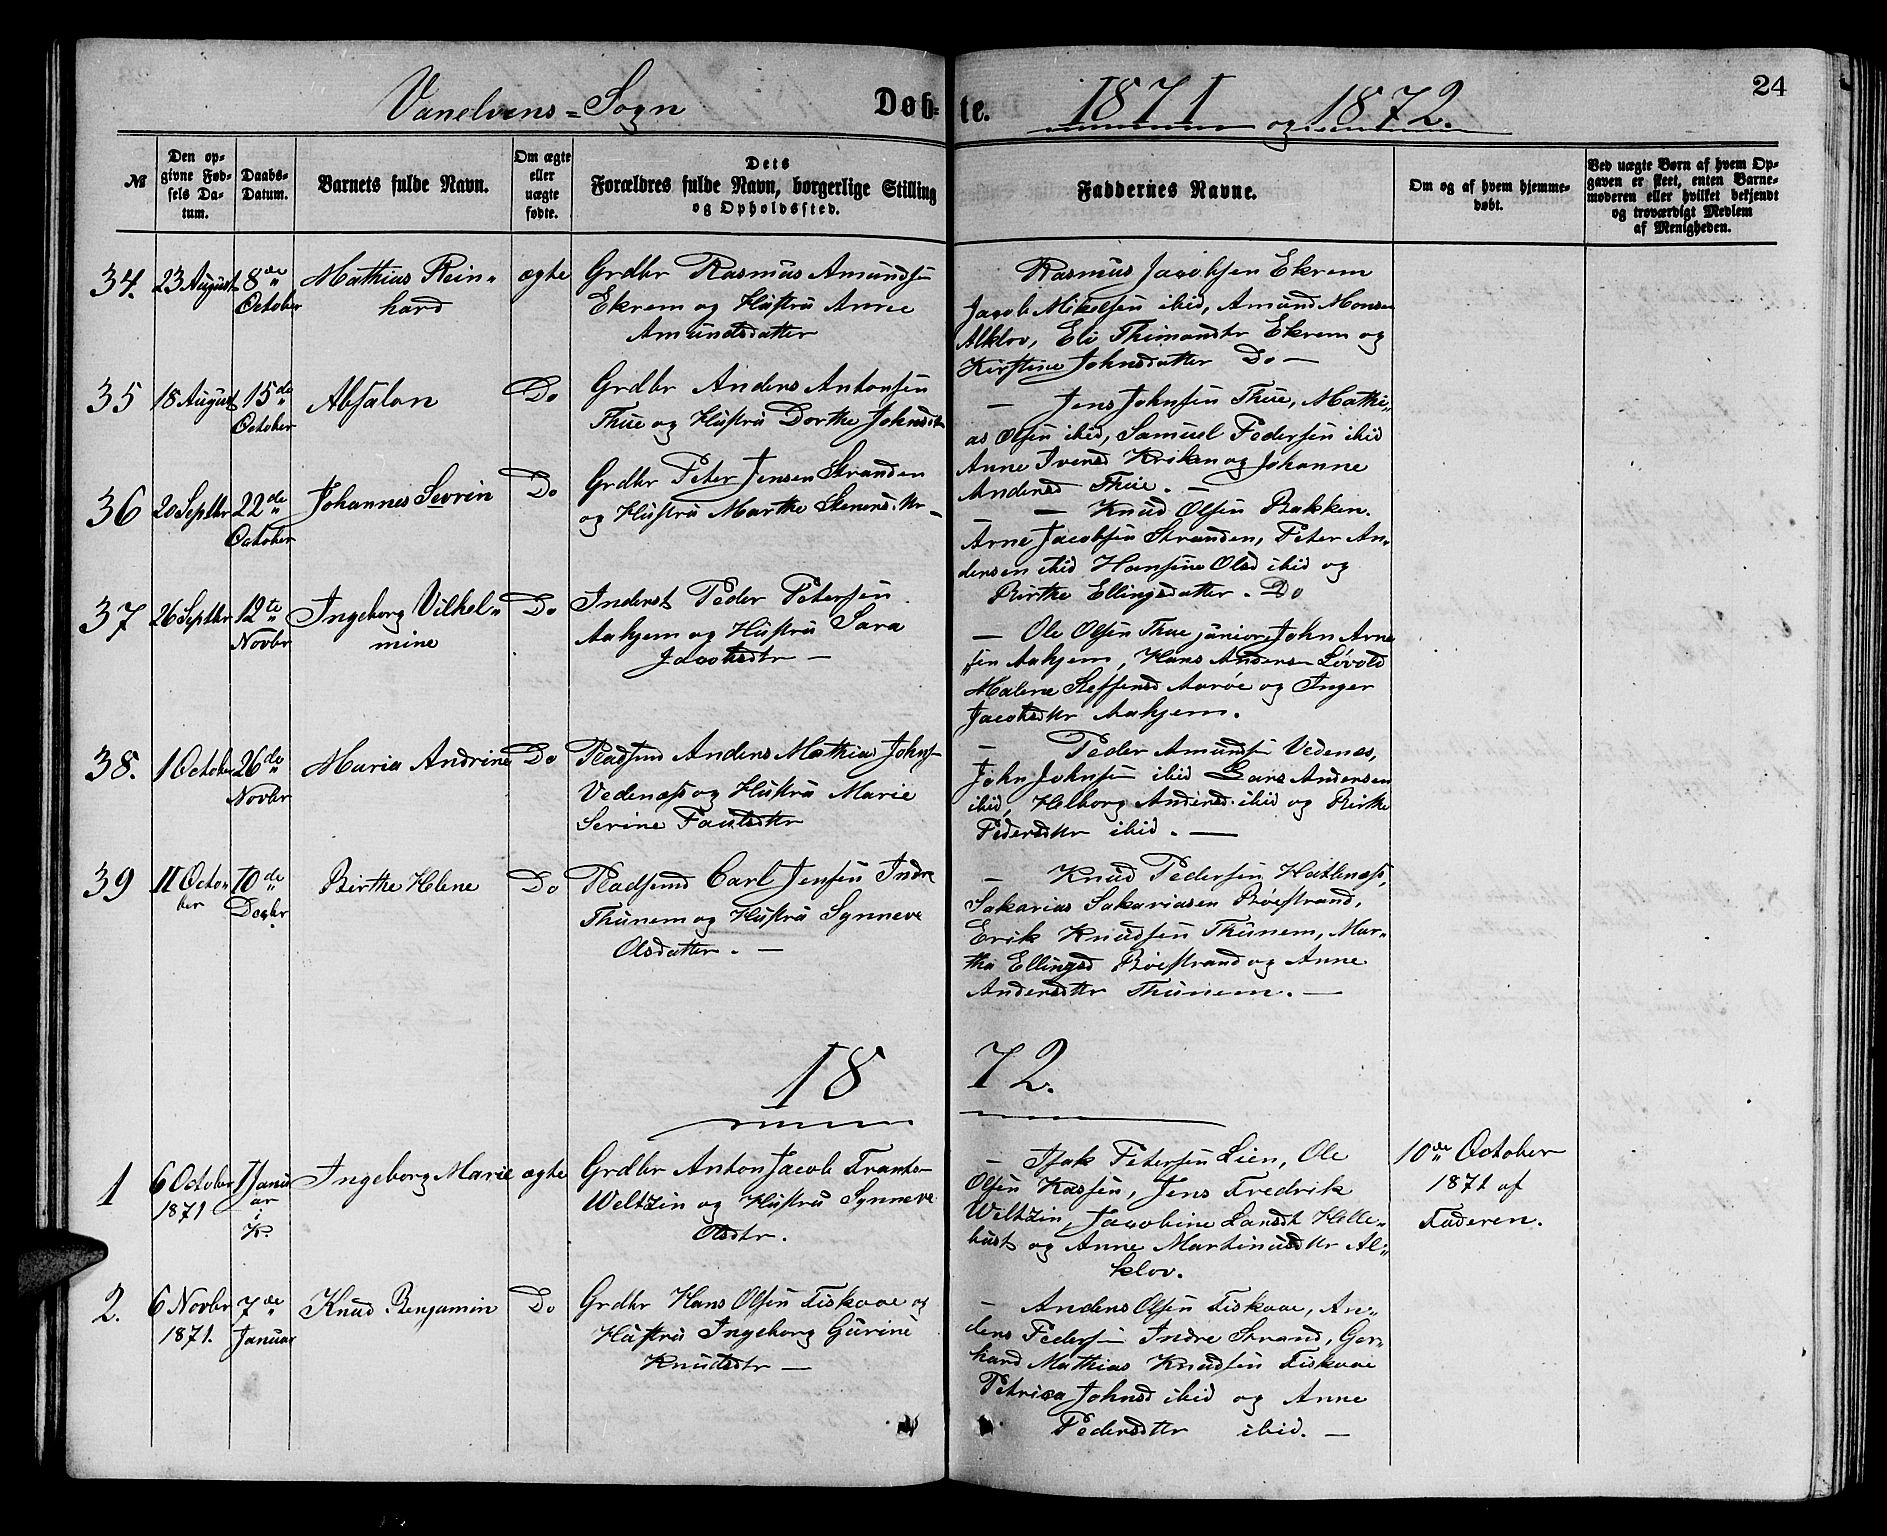 24
Vanelvens=Sogn Døb-te. 1871 og 1872.
№
Den opgivne Fødsels Datum.
Daabs-Datum.
Barnets fulde Navn.
Om ægte eller uægte fødte.
Dets Forældres fulde Navn, borgerlige Stilling og Opholdssted.
Faddernes Navne.
Om og af hvem hjemmedøbt.
Ved uægte Børn af hvem Opgaven er skeet, enten Barnemoderen eller hvilket bekjendt og troværdigt Medlem af Menigheden.
34. 23 August 8de October
Mathias Reinhard
ægte
Grdbr Rasmus Amundsen
Ekrem og Hustru Anne
Amundsdatter
Rasmus Jacobsen Ekrem
Jacob Mikelsen ibid, Amund Monsen
Alklov, Eli Thimandtr Ekrem og
Kirstine Johnsdatter Do —
35 18 August 15de October
Absalon
Do
Grdbr Anders Antonsen
Thue og Hustru Dorthe Johnsdtr
— Jens Johnsen Thue, Mathi„
as Olsen ibid, Samuel Pedersen ibid
Anne Iversd Kriken og Johanne
Andersd Thue. —
36 20 Septbr 22de October
Johannes Sevrin
Do
Grdbr Peter Jensen Stranden
og Hustru Marthe Stenersdtr —
— Knud Olsen Bakken.
Arne Jacobsen Stranden, Peter An„
dersen ibid Hansine Olsd ibid og
Birthe Ellingsdatter. Do
37 26 Septbr 12te Novbr
Ingeborg Vilhel„
mine
Do
Inderst Peder Petersen
Aahjem og Hustru Sara
Jacobsdtr —
— Ole Olsen Thue junior, John Arne
sen Aahjem, Hans Anders— Løvold
Malene Steffensd Aarøe og Inger
Jacobsdtr Aahjem.
38. 1 October 26de Novbr
Maria Andrine
Do
Pladsmd Anders Mathias Johns—
Vedenæs og Hustru Marie
Serine Paulsdtr
— Peder Amunds— Vedenes,
John Johnsen ibid Lars Andersen
ibid, Helborg Andersd ibid og Birthe
Pedersdtr ibid. —
39 11 October 10de Decbr
Birthe Helene
Do
Pladsmd Carl Jensen Indre
Thunem og Hustru Synneve
Olsdatter. —
— Knud Pedersen Hatlenæs,
Sakarias Sakariasen Røiestrand,
Erik Knudsen Thunem, Mar„
tha Ellingsd Røiestrand og Anne
Andersdtr Thunem. —
1872.
1 6 October 1871 1 Januar i K.
Ingeborg Marie
ægte
Grdbr Anton Jacob Frants—
Weltzin og Hustru Synneve
Olsdtr.
— Isak Petersen Lien, Ole
Olsen Kasfen, Jens Fredrik
Weltzin, Jacobine Larsdt Helle„
bust og Anne Martinusdtr Al„
klov.
10de October
1871 af
Faderen.
2. 6 Novbr 1871. 7de Januar
Knud Benjamin
Do
Grdbr Hans Olsen Fiskaae og
Hustru Ingeborg Gurine
Knudsdtr —
— Anders Olsen Fiskaae, An„
ders Peders— Indre Strand, Ger„
hard Mathias Knudsen Fiskaae
Petrica Johnsd ibid og Anne
Pedersdtr ibid. —